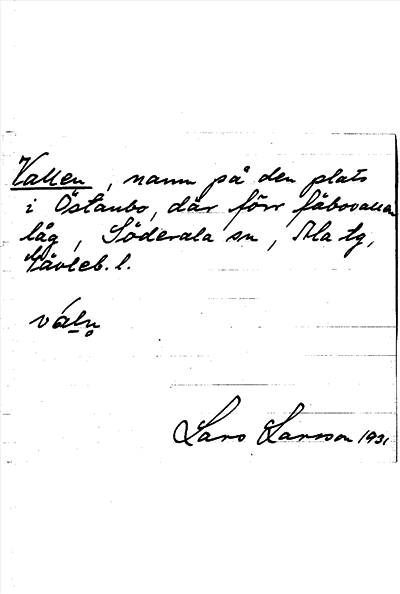 Vallen, namn på den plats
i Östanbo, där förr fäbovallen
låg, Söderala sn, Ala tg,
Gävleb. l.
váln̥
Lars Larsson 1931